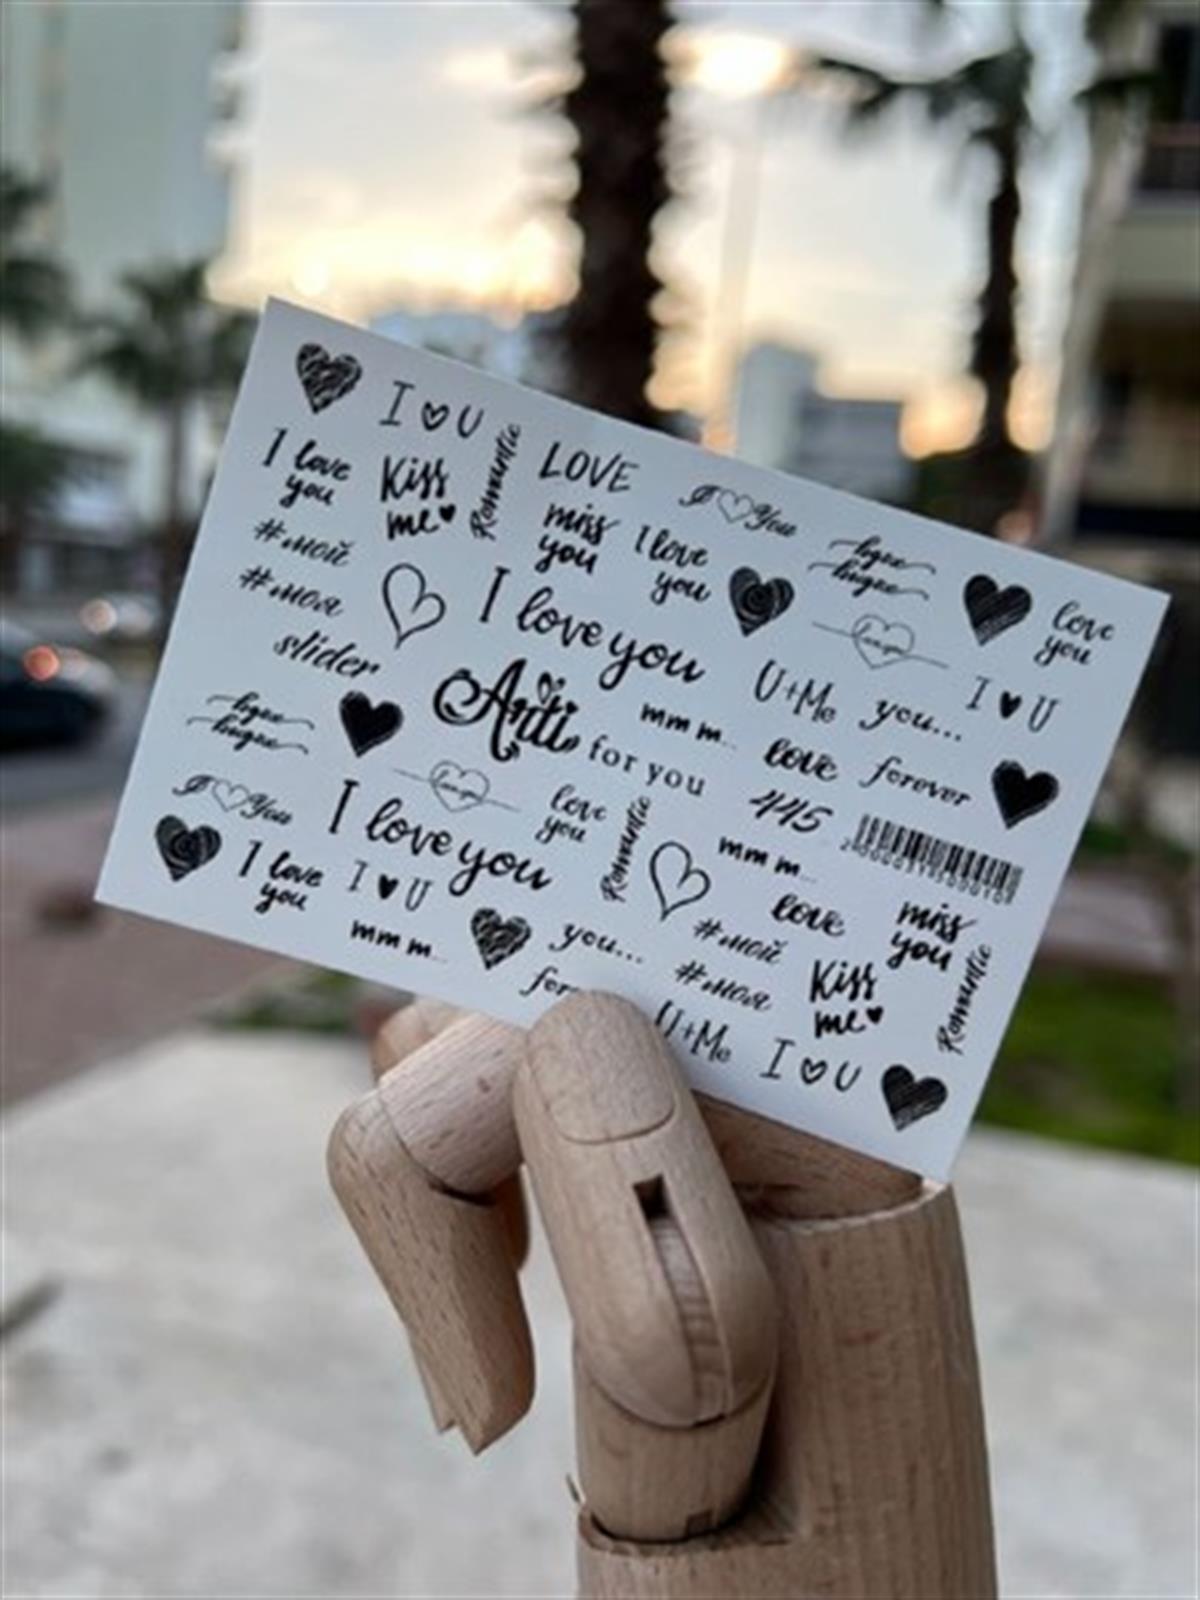 I U
I love
you
Kiss
me
Romantic
LOVE
miss
you
I love
you
I You
love
you
#мой
#моя
slider
I love you
U+Me
you...
I U
Anti
for you
mm m...
love
forever
445
I You
I love you
love
you
Romantic
mm m...
I love
you
I U
love
miss
you
mm m...
you...
#мой
#моя
Kiss
me
Romantic
U+Me
I U